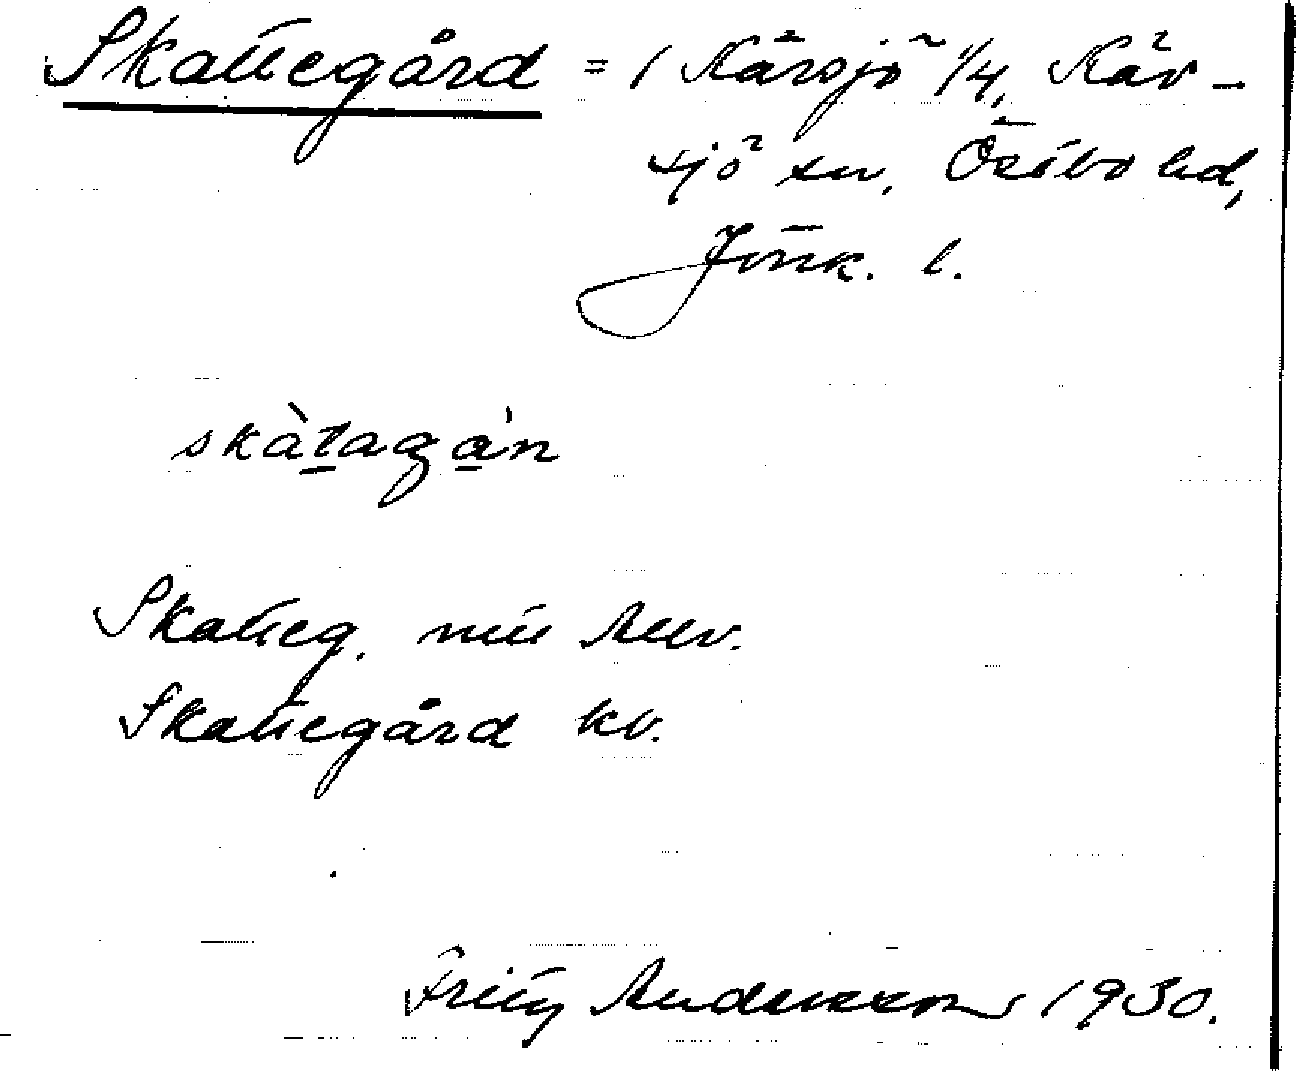 Skattegård = 1 Kävsjö 1/4, Käv-
sjö sn, Östbo hd,
Jönk. l.
skàtagán
Skatteg. mtl
Skattegård kv.
Fritz Andersson 1930.